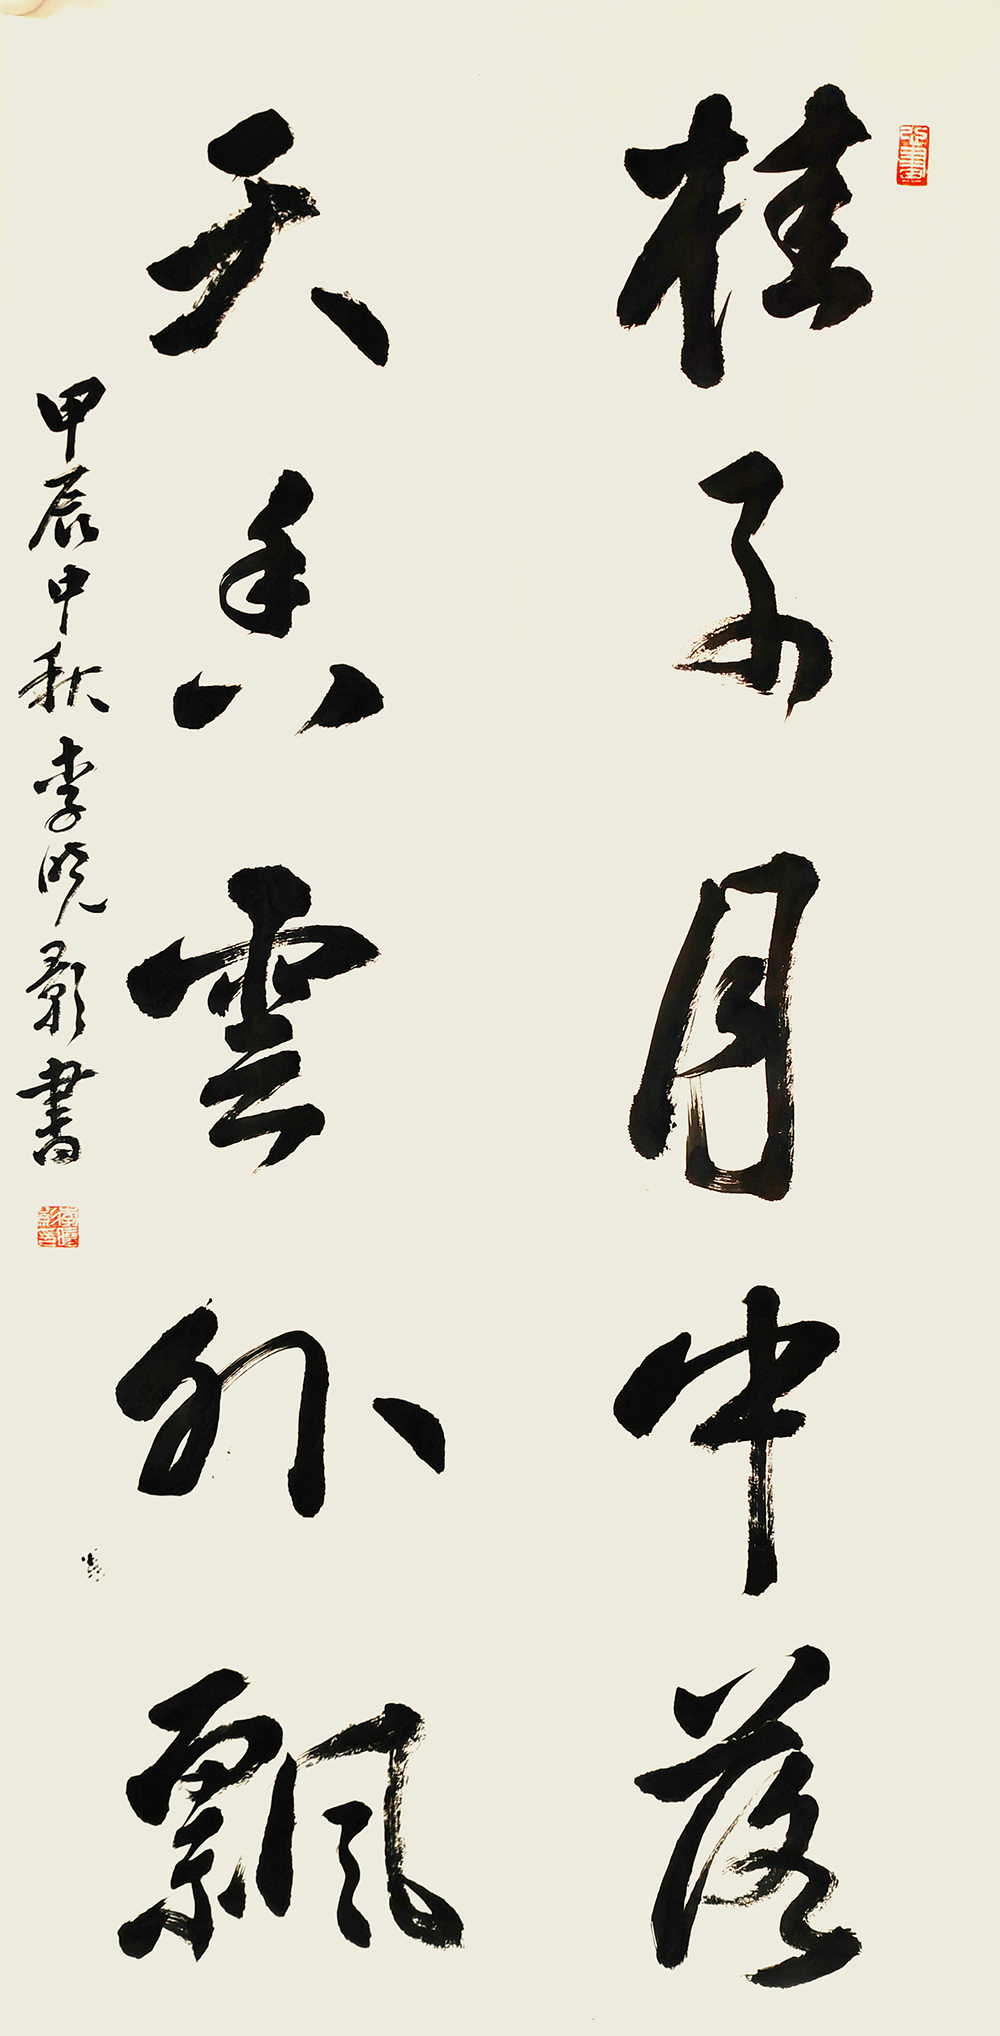 桂子月中落
天香雲外飄
甲辰中秋李晓影書